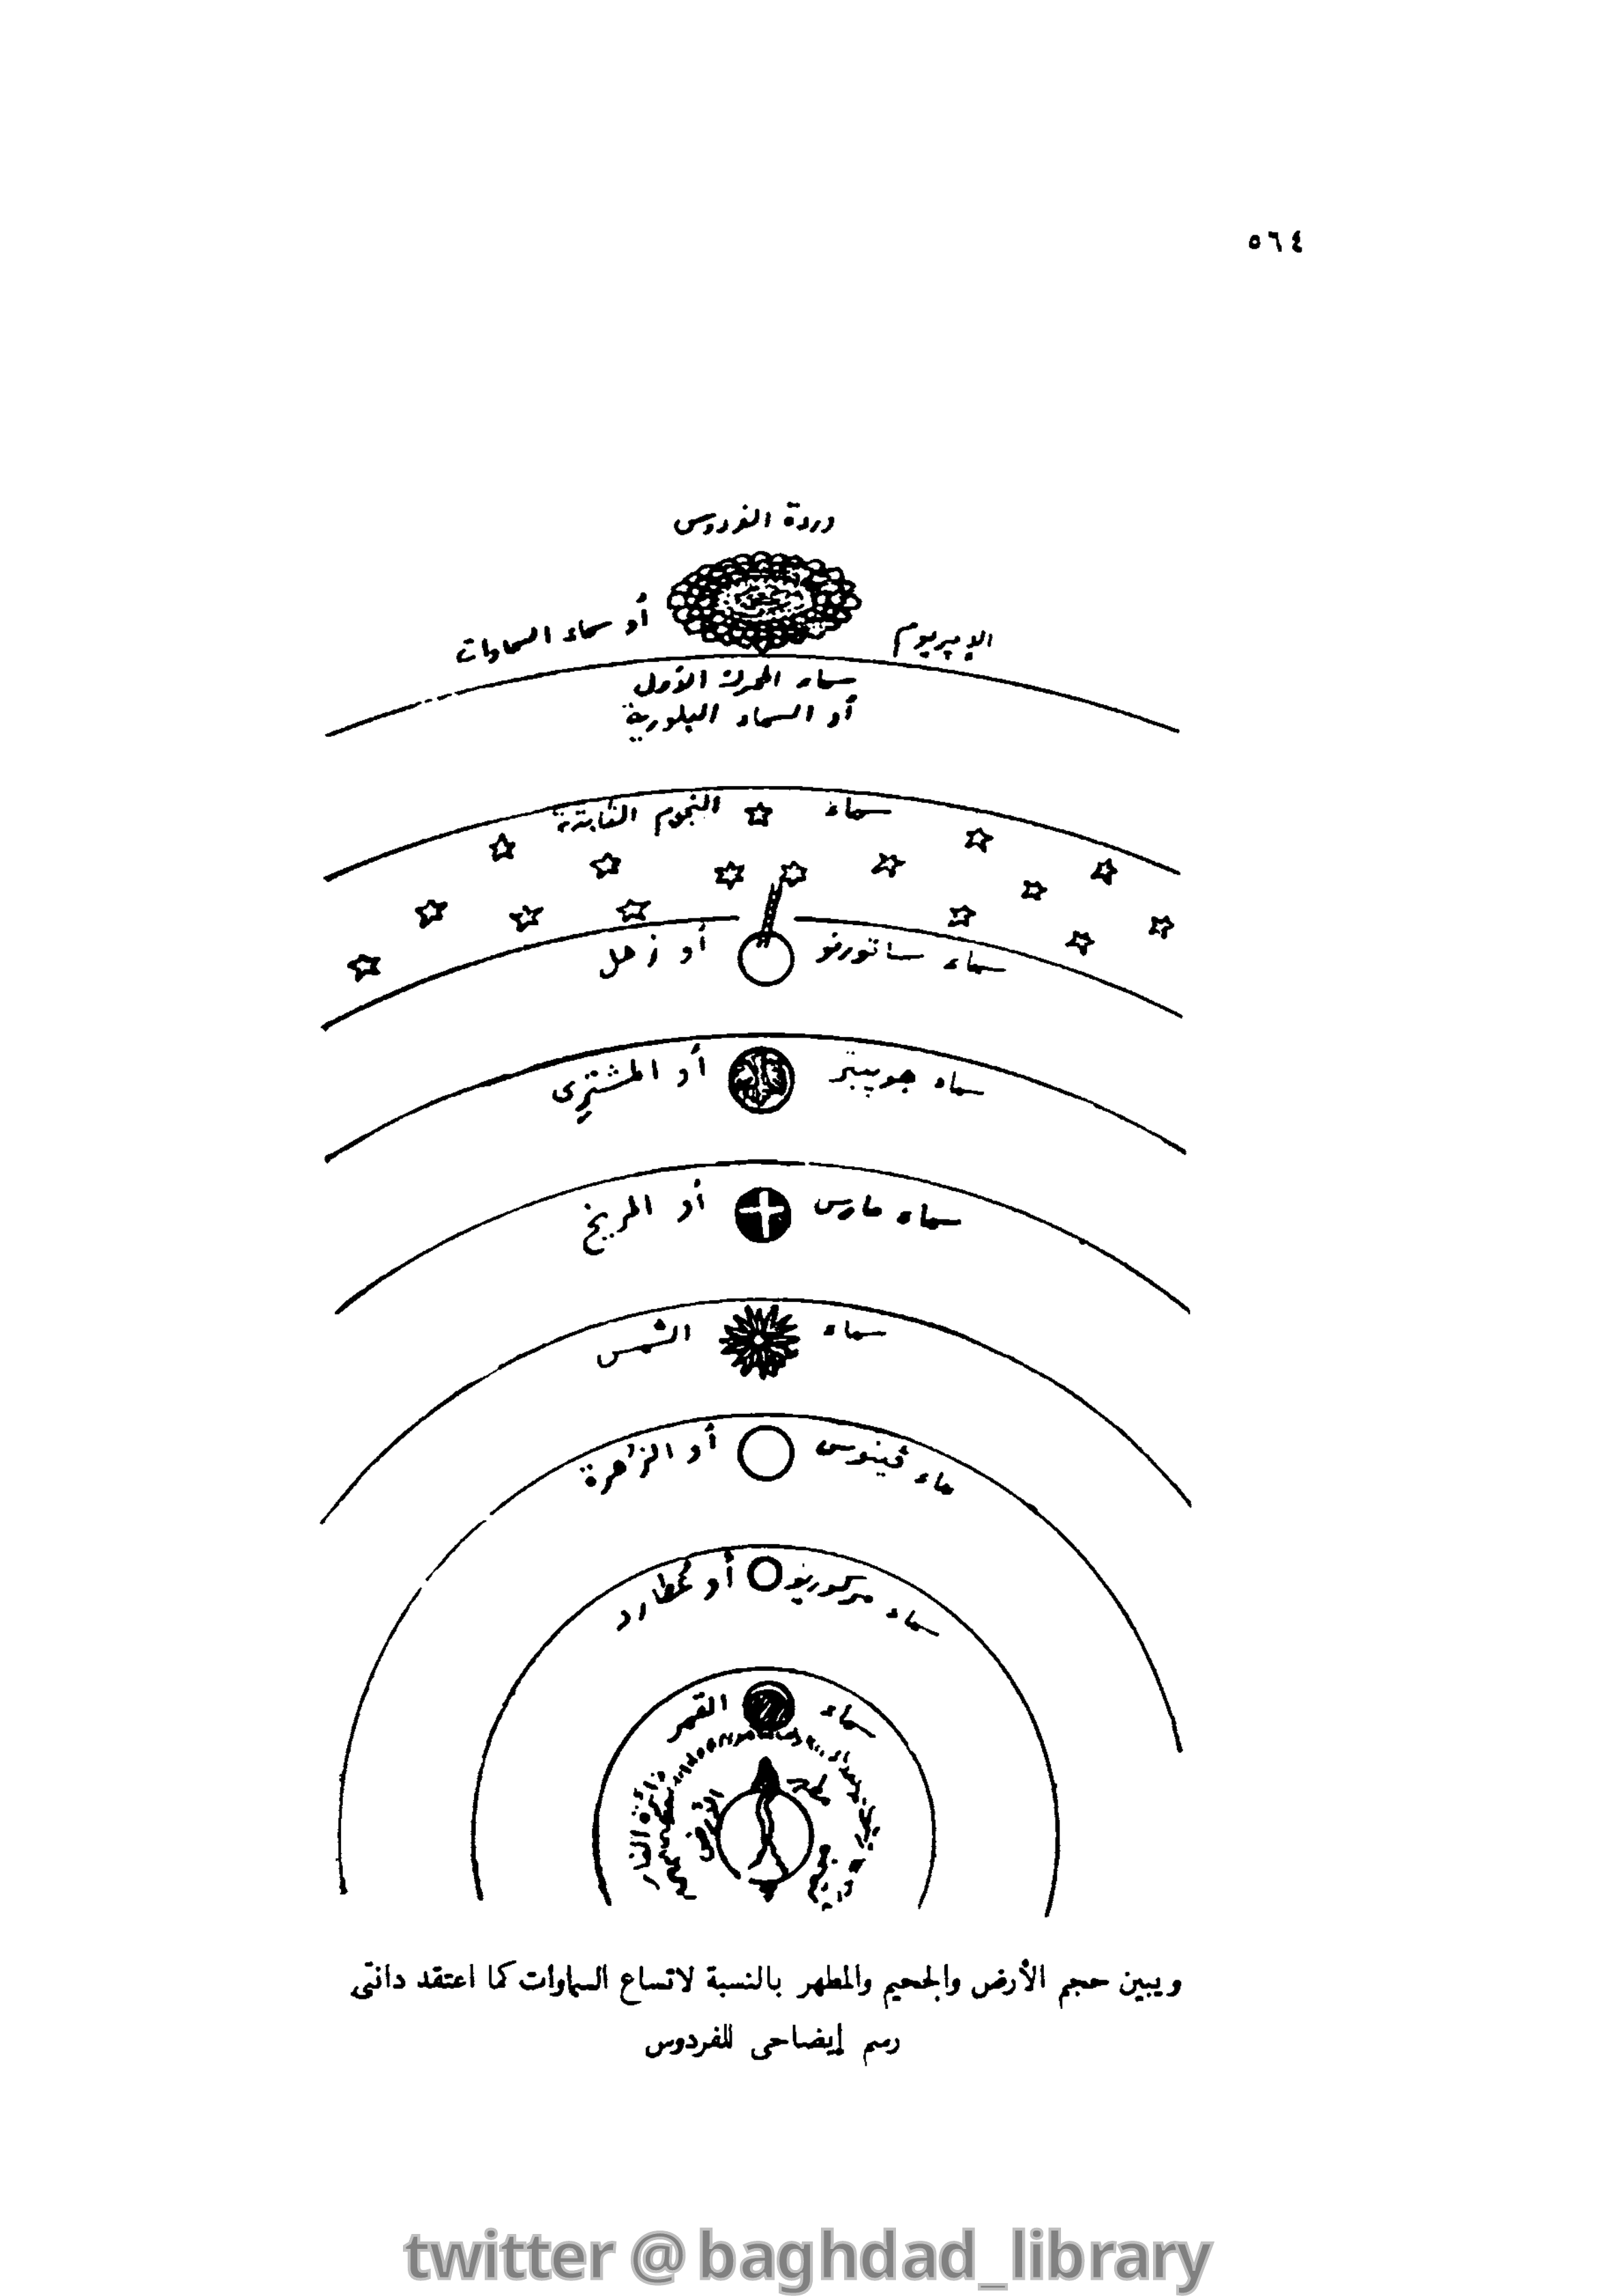 ٥٦٤
وردة الفردوس
الإمپريوم أو سماء السماوات
سماء المحرك الأول
أو السماء البلورية
سماء النجوم الثابتة
سماء ساتورنو أو زحل
سماء جوپيتر أو المشترى
سماء مارس أو المريخ
سماء الشمس
سماء ڤينوس أو الزُّهرة
سماء مركوريو أو عُطارد
سماء القمر
دائرة النار
الأرض
ويبين حجم الأرض والجحيم والمطهر بالنسبة لاتساع السماوات كما اعتقد دانتى
رسم إيضاحى للفردوس
twitter @ baghdad_library